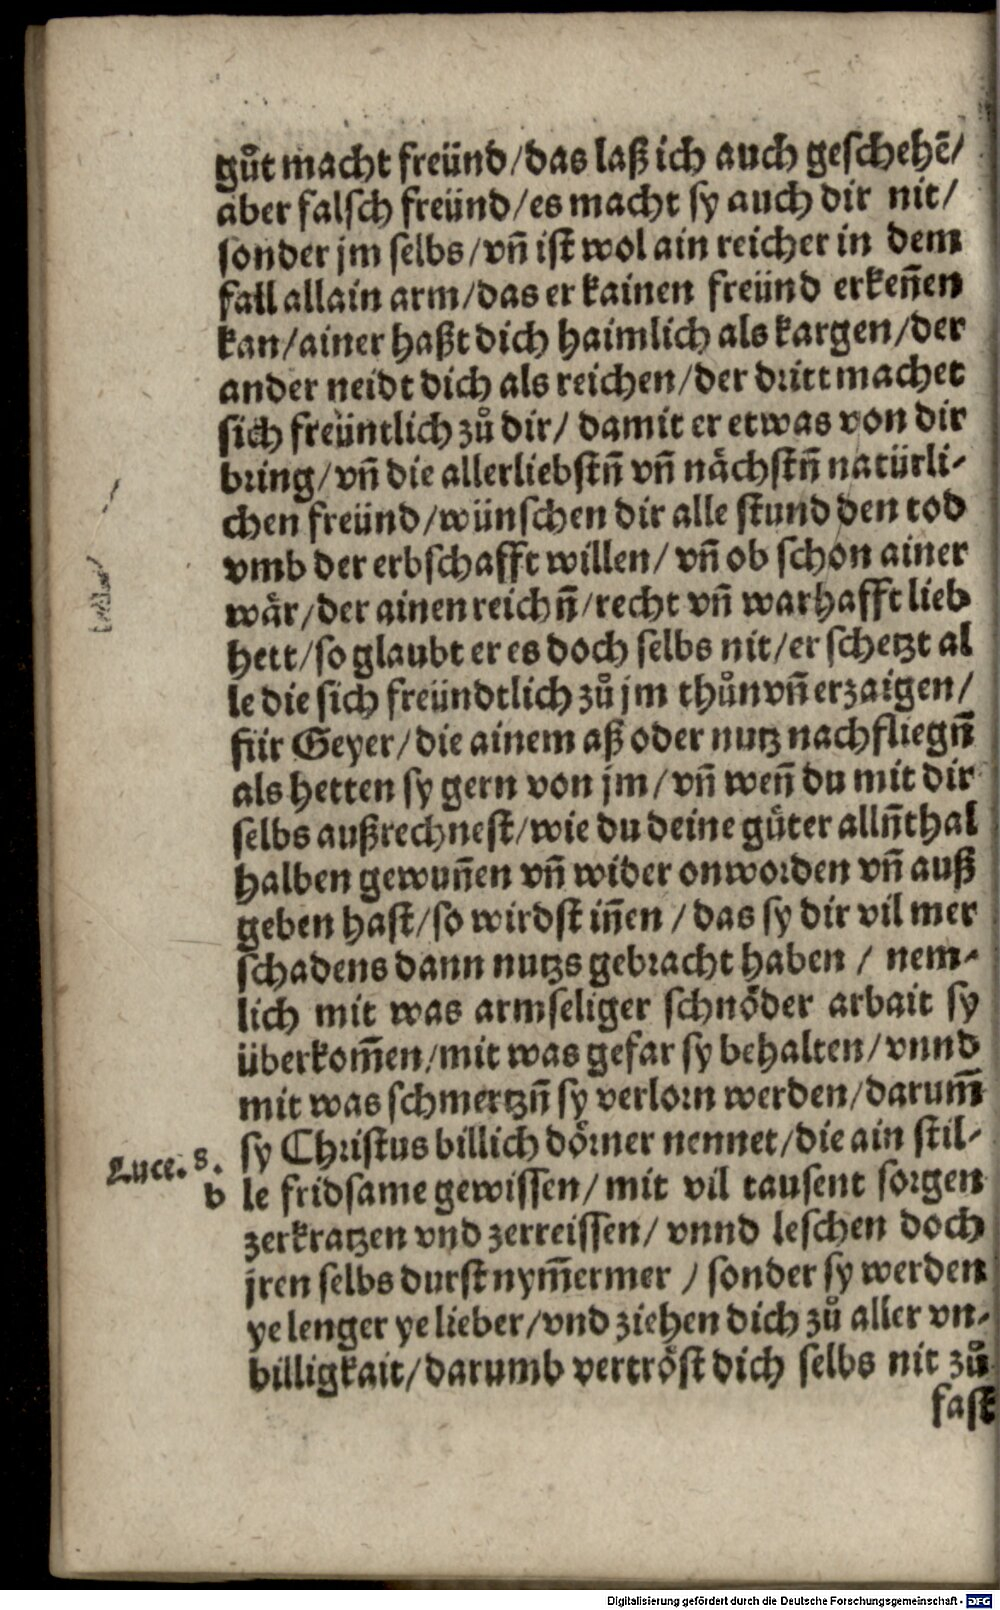 gůt macht freünd/das laß ich auch geschehē/
aber falsch freünd/es macht sy auch dir nit/
sonder jm selbs/vn̄ ist wol ain reicher in dem
fall allain arm/das er kainen freünd erken̄en
kan/ainer haßt dich haimlich als kargen/der
ander neidt dich als reichen/der dritt machet
sich freüntlich zů dir/ damit er etwas von dir
bring/vn̄ die allerliebstn̄ vn̄ nächstn̄ natürli-
chen freünd/wünschen dir alle stund den tod
vmb der erbschafft willen/ vn̄ ob schon ainer
wär/der ainen reichn̄/recht vn̄ warhafft lieb
hett/so glaubt er es doch selbs nit/er schetzt al
le die sich freündtlich zů jm thůn vn̄ erzaigen/
für Geyer/die ainem aß oder nutz nachfliegn̄
als hetten sy gern von jm/vn̄ wen̄ du mit dir
selbs außrechnest/wie du deine güter alln̄thal
halben gewun̄en vn̄ wider onworden vn̄ auß
geben hast/so wirdst in̄en/das sy dir vil mer
schadens dann nutzs gebracht haben / nem-
lich mit was armseliger schnöder arbait sy
überkom̄en/mit was gefar sy behalten/vnnd
mit was schmertzn̄ sy verlorn werden/darum̄
sy Christus billich dörner nennet/die ain stil-
Luce. 8.
b
le fridsame gewissen/mit vil tausent sorgen
zerkratzen vnd zerreissen/ vnnd leschen doch
jren selbs durst nym̄ermer / sonder sy werden
ye lenger ye lieber/vnd ziehen dich zů aller vn-
billigkait/darumb vertröst dich selbs nit zů
fast
Digitalisierung gefördert durch die Deutsche Forschungsgemeinschaft - DFG